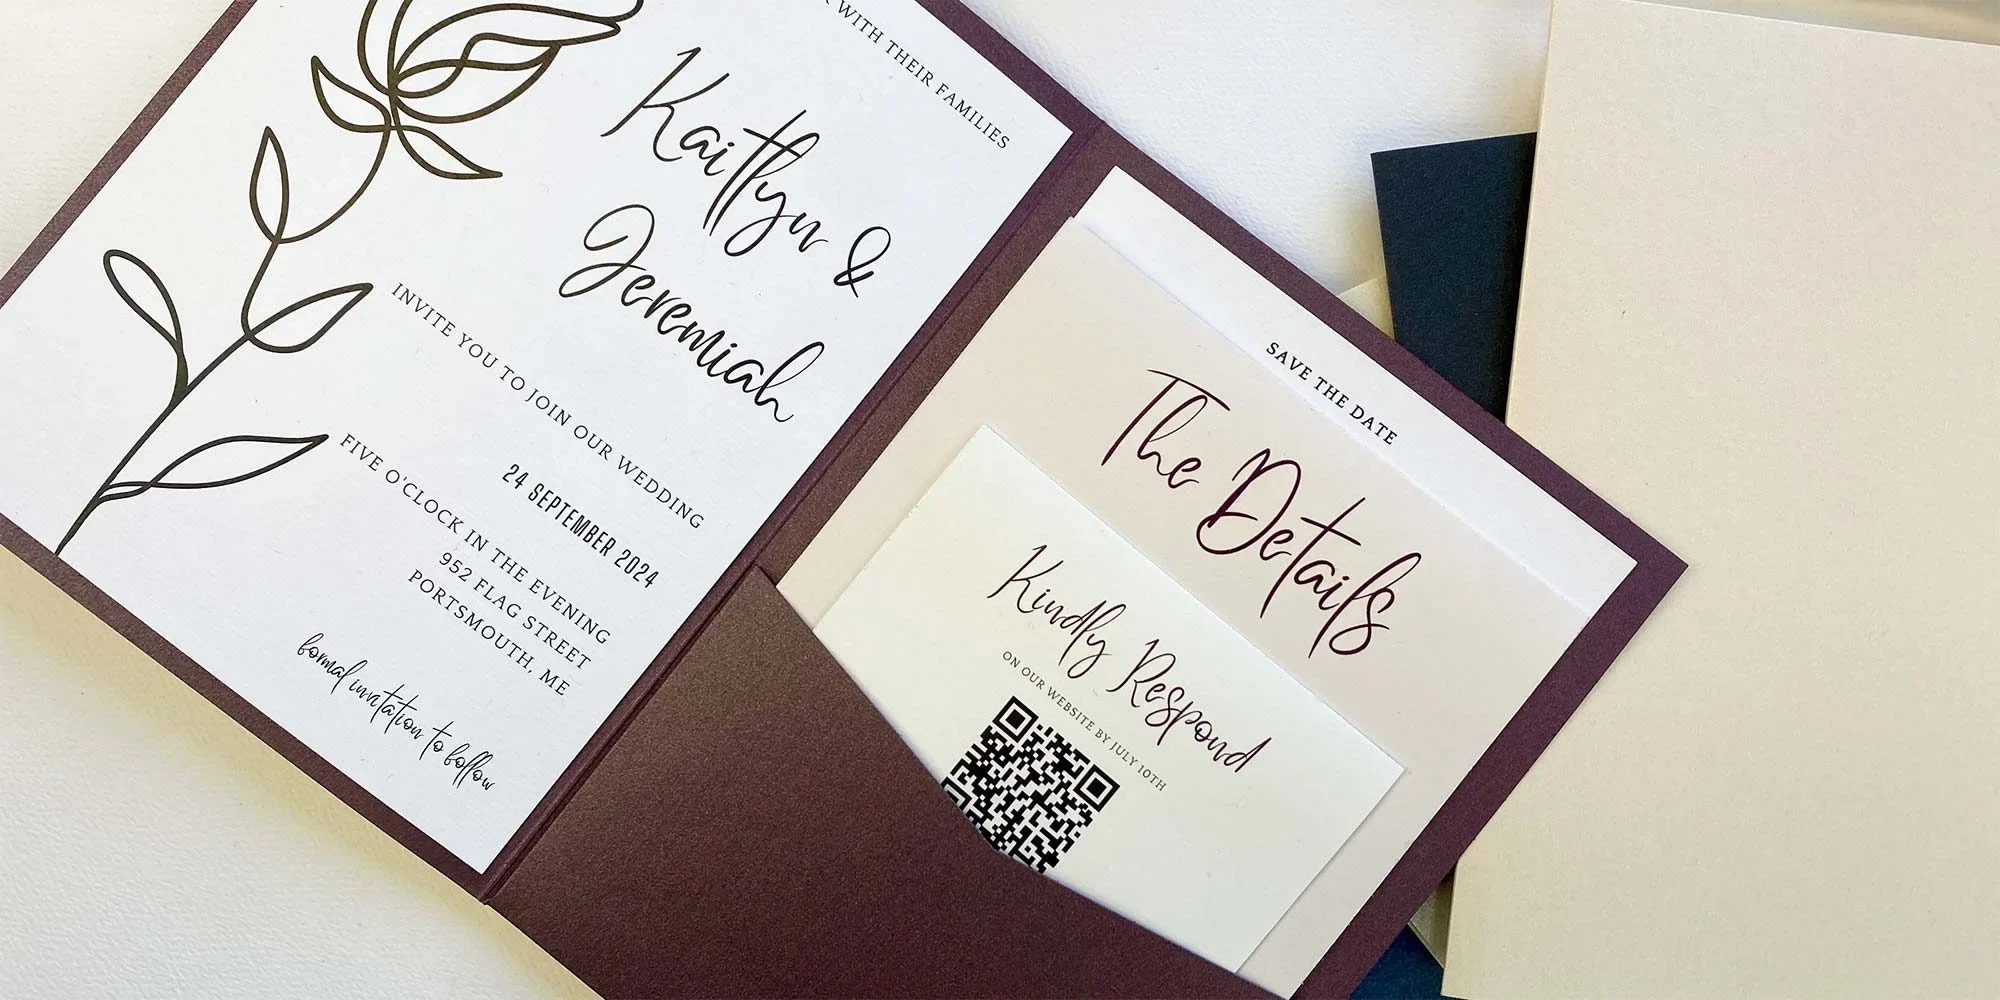 WITH THEIR FAMILIES
Kaitlyn &
Jeremiah
INVITE YOU TO JOIN OUR WEDDING
24 SEPTEMBER 2024
FIVE O'CLOCK IN THE EVENING
952 FLAG STREET
PORTSMOUTH, ME
formal invitation to follow
SAVE THE DATE
The Details
Kindly Respond
ON OUR WEBSITE BY JULY 10TH